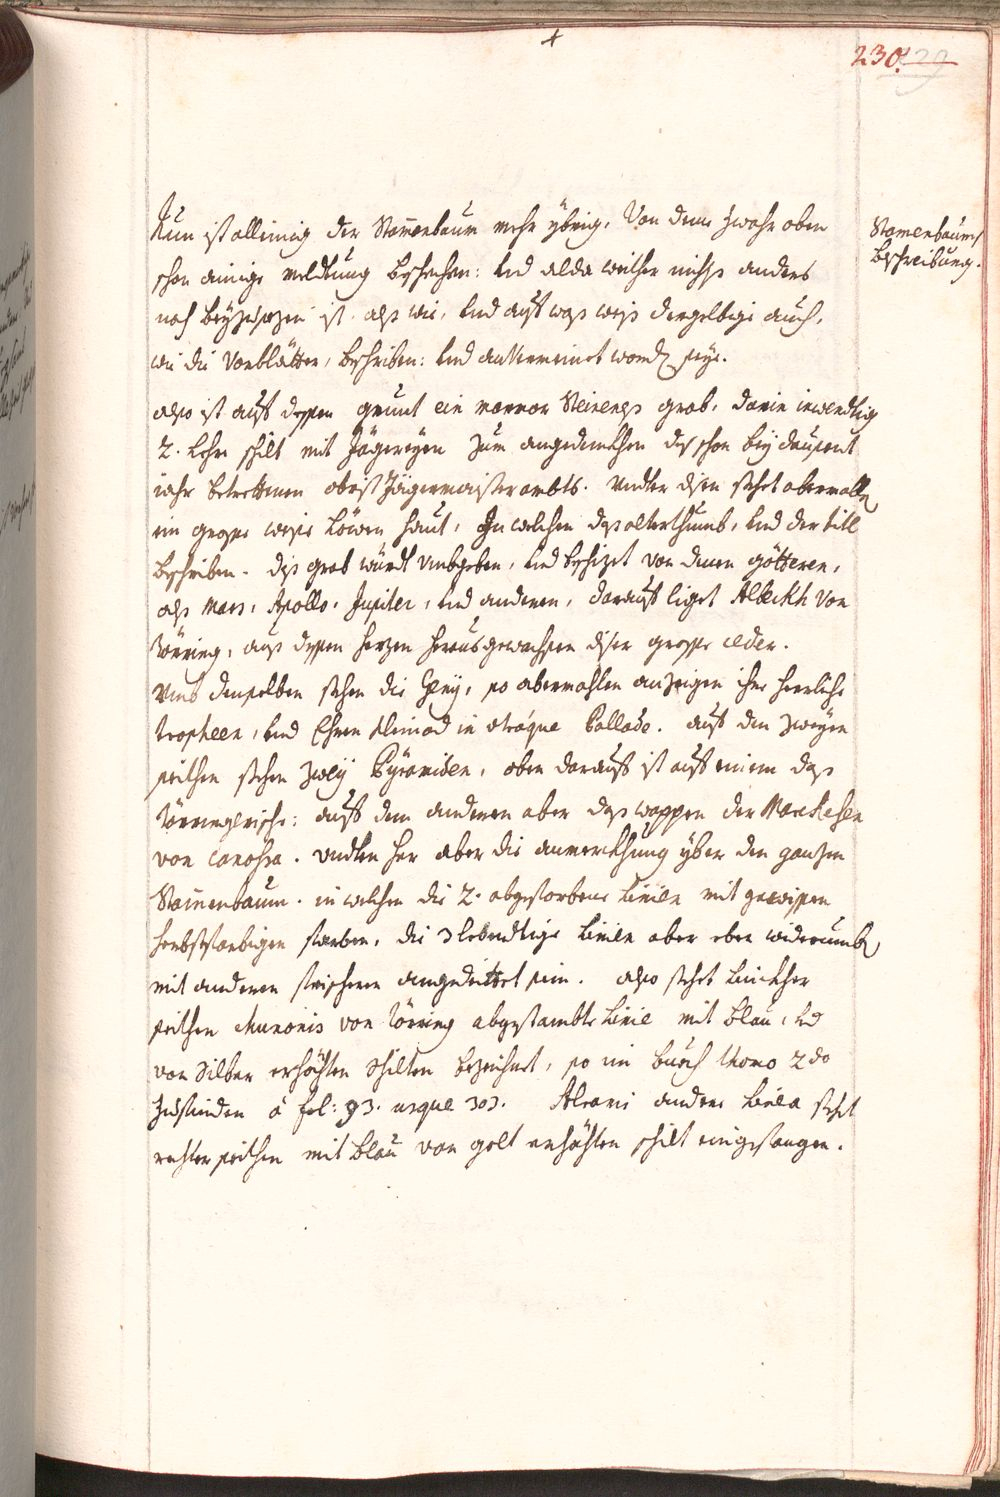 230.
Stamenbaums
beschreibung.
Nun ist alleinig der Stam̄enbaum mehr ybrig, Von deme zwahr oben
schon ainige meldtung beschehen: Und alda weither nichts anders
noch beyzusezen ist, alß wie, Und auf waß weiß dergelbige auch,
wie die Vorblätter, beschriben: Und
worden seye.
Also ist auf dessen grunt ein marmor Steinenes grab, darin inwendtig
2. Lehre schilt mit Jägereyen zum angedenkhen deß schon bey dausent
iahr betrettenen obrist Jägermaisterambts. Undter disen stehet abermallen
ein grosse weise Löwen haut, In welchen daß alterthumb, Und der titl
beschriben. diß grab würdt Umbgeben, Und beschizet von denen götteren,
alß Mars, Apollo, Jupiter, Und anderen, darauf liget Albickh Von
Törring, auß dessen herzen herausgewachsen diser grosse ceder.
Umb denselben stehen die Genij, so abermahlen anzeigen ihre herrliche
tropheen, Und Ehren kleinod in utráque Pallade. auf den zweyen
seithen stehen zwey Pÿramiden, oben darauf ist auf einem daß
Törringerische: auf dem anderen aber daß wappen der Markesen
von Canossa. undten her aber die anmerckhung yber den ganzen
Stam̄enbaum. in welchen die 2. abgestorbene Linien mit gewissen
herbstfarbigen farben, die 3 lebendtige Linien aber eben widerumben
mit anderen frischeren angedeittet sein. Also stehet linckher
seithen Kunonis von Törring abgestambte Linie mit blau, Und
von Silber erhöchten Schilten bezeichnet, so im buech thomo 2do
zufinden à fol: 93. usque 303. Alrami andere Linea stehet
rechter seithen mit blau von golt erhöchten schilt eingefangen.